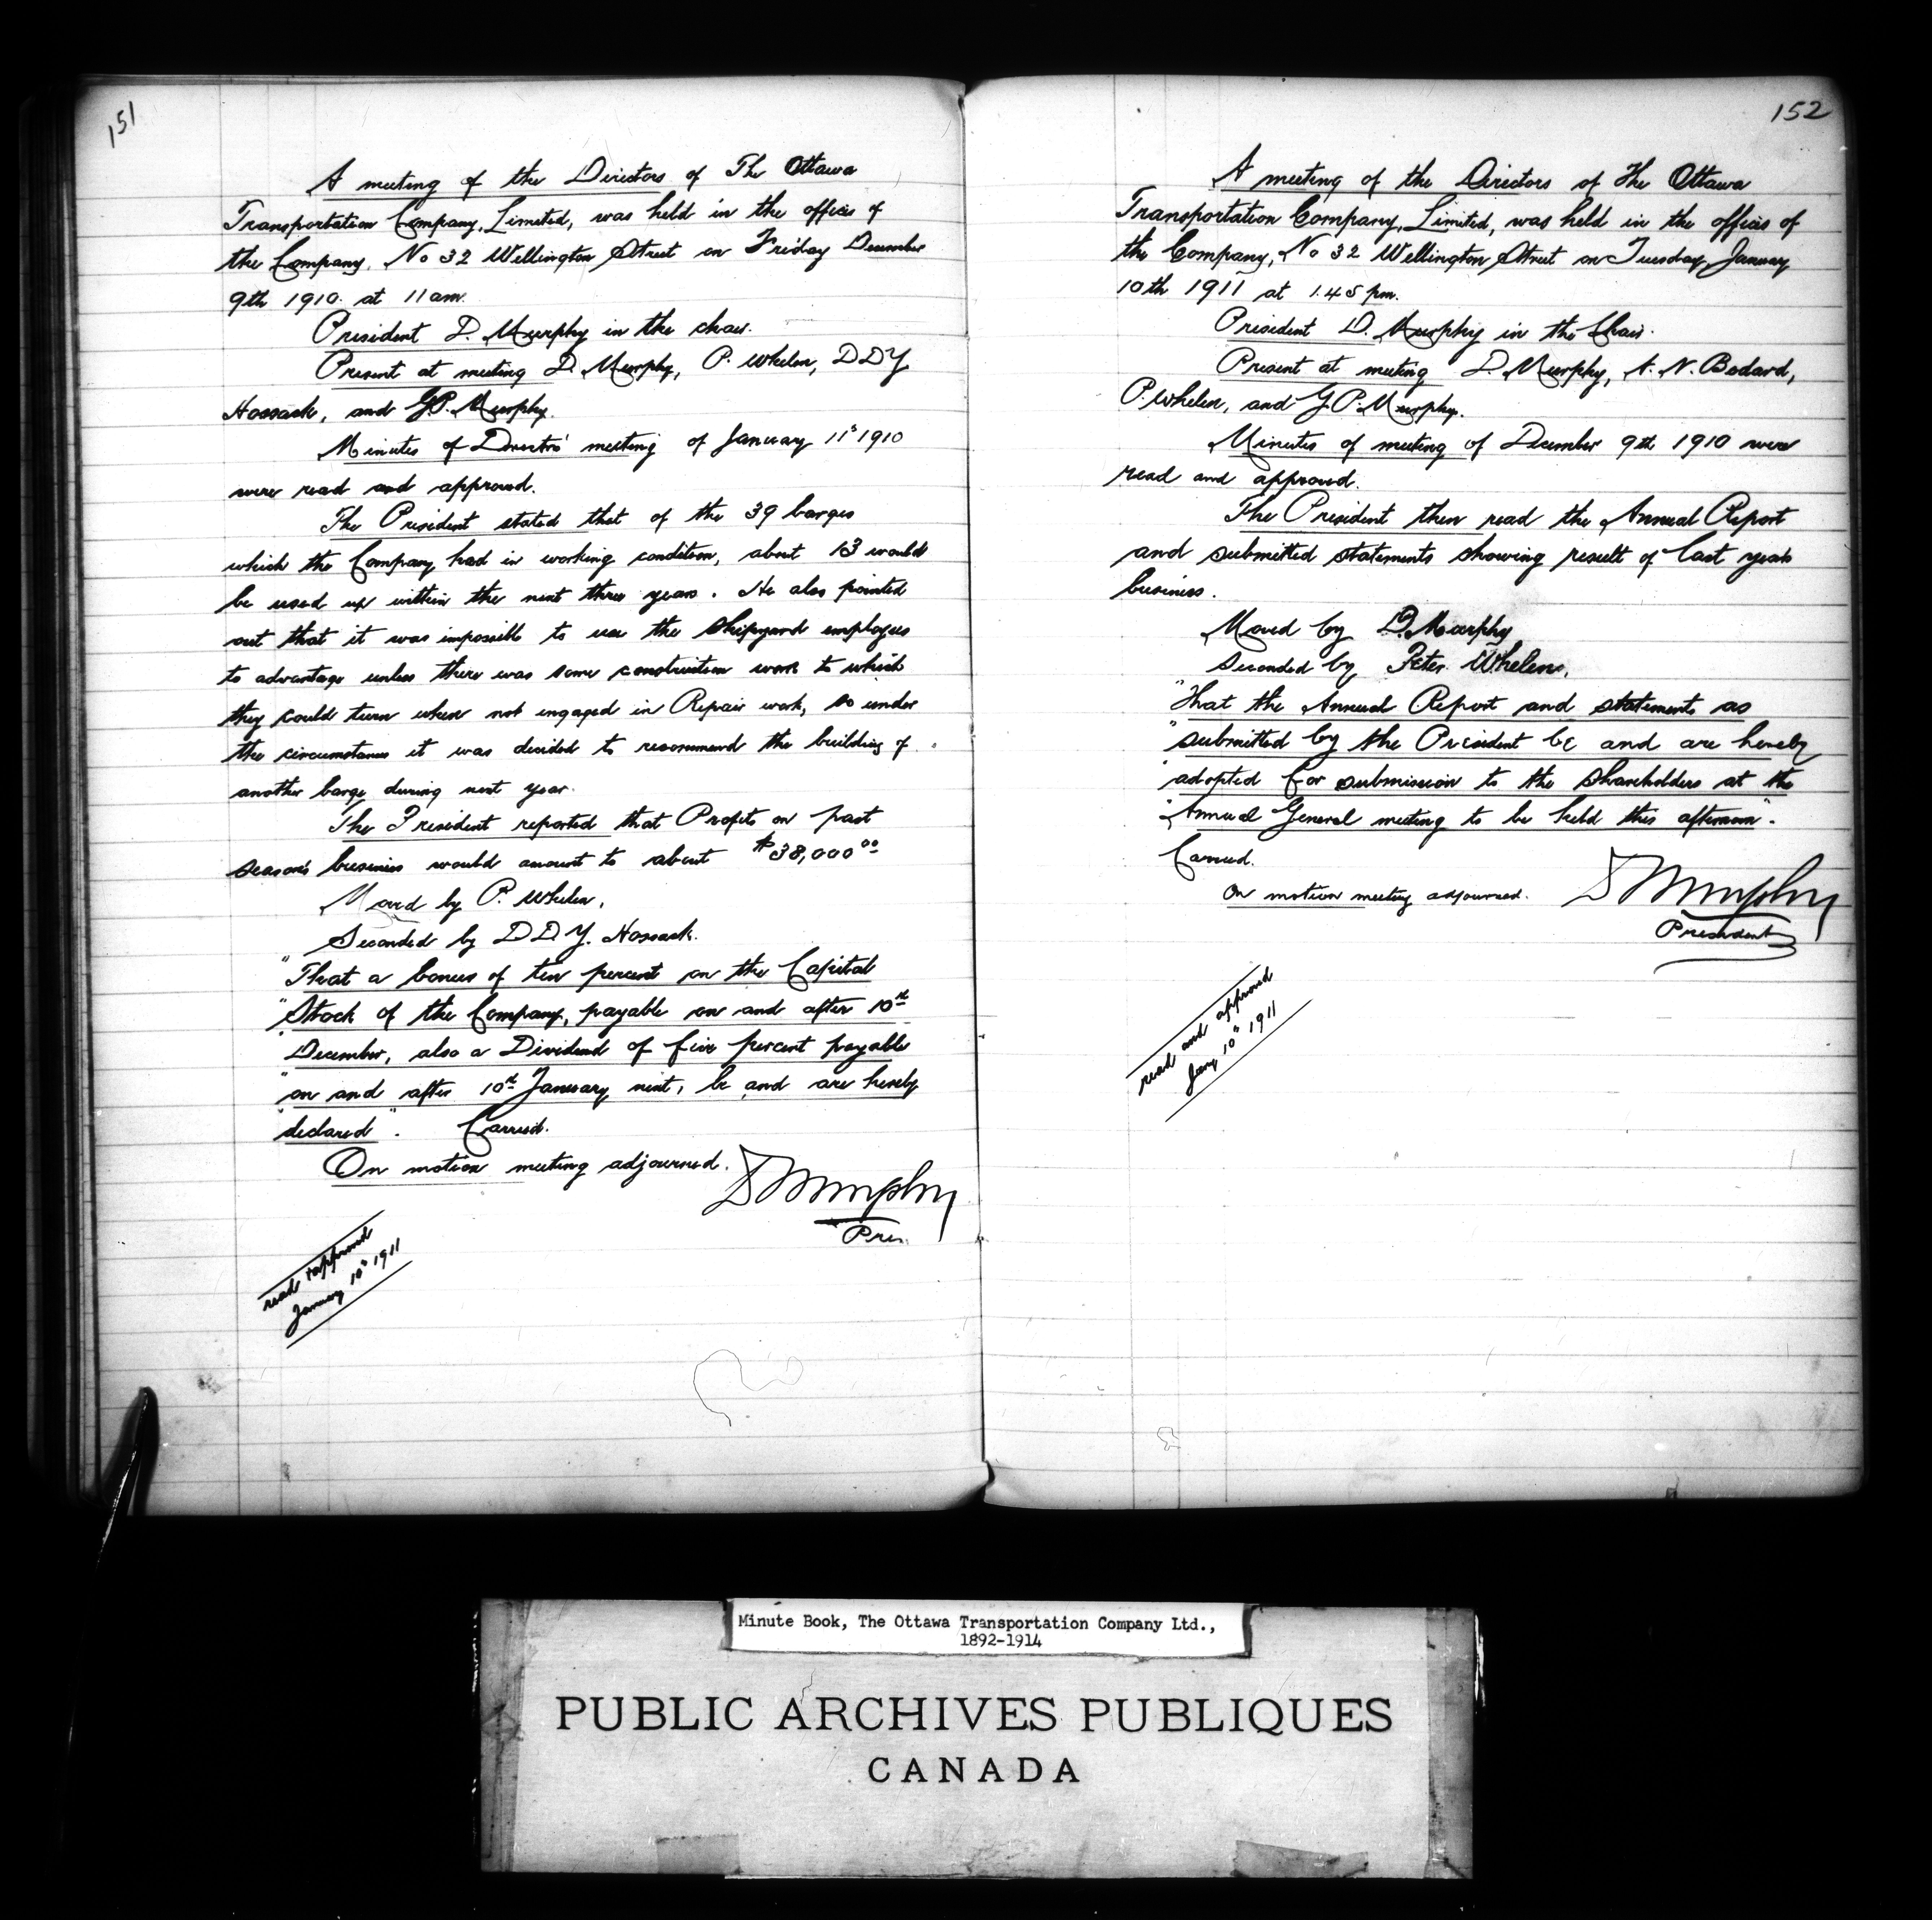 151
A meeting of the Directors of The Ottawa
Transportation Company, Limited, was held in the offices of
the Company, No 32 Wellington Street on Friday December
9th 1910. at 11 am.
President D. Murphy in the chair.
Present at meeting D. Murphy, P. Whelen, D D Y
Hossack, and G.P. Murphy.
Minutes of Directors' meeting of January 11th 1910
were read and approved.
The President stated that of the 39 barges
which the Company had in working condition, about 13 would
be used up within the next three years. He also pointed
out that it was impossible to use the Shipyard employees
to advantage unless there was some construction work to which
they could turn when not engaged in Repair work, so under
the circumstances it was decided to recommend the building of
another barge during next year.
The President reported that Profits on past
season's business would amount to about $38,000.00
Moved by P. Whelen,
Seconded by D D Y. Hossack.
"That a bonus of ten percent on the Capital
"Stock of the Company, payable on and after 10th
"December, also a Dividend of five percent payable
"on and after 10th January next, be and are hereby
"declared". Carried.
On motion meeting adjourned.
D Murphy
Pres.
read & approved
January 10th 1911
152
A meeting of the Directors of The Ottawa
Transportation Company, Limited, was held in the offices of
the Company, No 32 Wellington Street on Tuesday, January
10th 1911 at 1.45 pm.
President D. Murphy in the Chair.
Present at meeting D. Murphy, A. N. Bedard,
P. Whelen, and G.P. Murphy.
Minutes of meeting of December 9th 1910 were
read and approved.
The President then read the Annual Report
and submitted statements showing result of last years
business.
Moved by D. Murphy
Seconded by Peter Whelen,
"That the Annual Report and statements as
"submitted by the President be and are hereby
"adopted for submission to the Shareholders at the
"Annual General meeting to be held this afternoon".
Carried.
On motion meeting adjourned.
D Murphy
President
read and approved
Jany 10th 1911
Minute Book, The Ottawa Transportation Company Ltd.,
1892-1914
PUBLIC ARCHIVES PUBLIQUES
CANADA